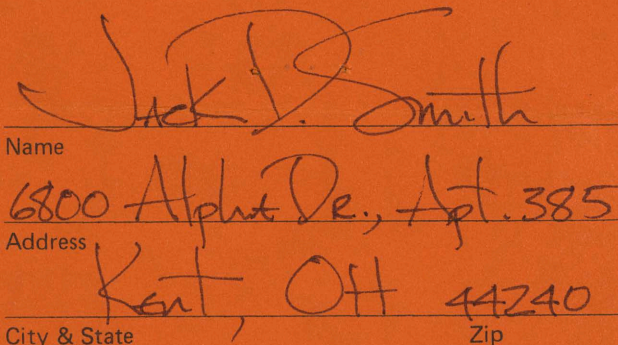 Jack D. Smith
Name
6800 Alpha Dr., Apt. 385
Address
Kent, OH 44240
City & State Zip